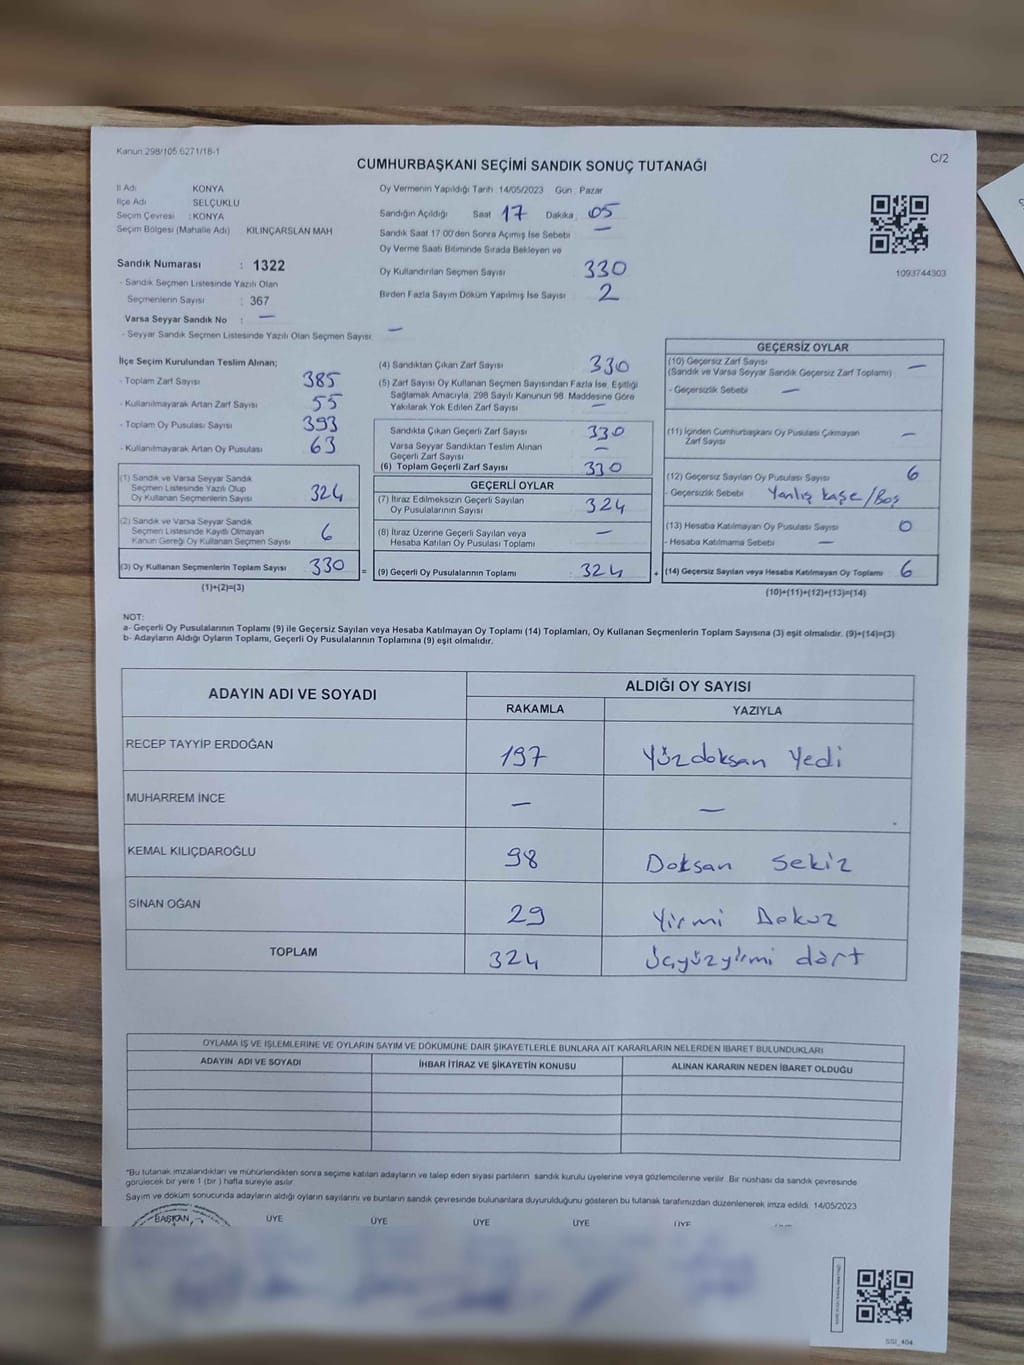 Kanun 298/105 6271/18-1
CUMHURBAŞKANI SEÇİMİ SANDIK SONUÇ TUTANAĞI
C/2
İl Adı KONYA
İlçe Adı SELÇUKLU
Seçim Çevresi : KONYA
Seçim Bölgesi (Mahalle Adı) KILINÇARSLAN MAH
Sandık Numarası : 1322
- Sandık Seçmen Listesinde Yazılı Olan
Seçmenlerin Sayısı : 367
Varsa Seyyar Sandık No : —
- Seyyar Sandık Seçmen Listesinde Yazılı Olan Seçmen Sayısı —
Oy Vermenin Yapıldığı Tarih 14/05/2023 Gün : Pazar
Sandığın Açıldığı Saat 17 Dakika 05
Sandık Saat 17.00'den Sonra Açımış İse Sebebi —
Oy Verme Saati Bitiminde Sırada Bekleyen ve
Oy Kullandırılan Seçmen Sayısı 330
Birden Fazla Sayım Döküm Yapılmış İse Sayısı 2
1093744303
İlçe Seçim Kurulundan Teslim Alınan;
- Toplam Zarf Sayısı 385
- Kullanılmayarak Artan Zarf Sayısı 55
- Toplam Oy Pusulası Sayısı 393
- Kullanılmayarak Artan Oy Pusulası 63
(1) Sandık ve Varsa Seyyar Sandık
Seçmen Listesinde Yazılı Olup
Oy Kullanan Seçmenlerin Sayısı 324
(2) Sandık ve Varsa Seyyar Sandık
Seçmen Listesinde Kayıtlı Olmayan
Kanun Gereği Oy Kullanan Seçmen Sayısı 6
(3) Oy Kullanan Seçmenlerin Toplam Sayısı 330
(1)+(2)=(3)
=
(4) Sandıktan Çıkan Zarf Sayısı 330
(5) Zarf Sayısı Oy Kullanan Seçmen Sayısından Fazla İse, Eşitliği
Sağlamak Amacıyla, 298 Sayılı Kanunun 98. Maddesine Göre
Yakılarak Yok Edilen Zarf Sayısı —
Sandıkta Çıkan Geçerli Zarf Sayısı 330
Varsa Seyyar Sandıktan Teslim Alınan
Geçerli Zarf Sayısı —
(6) Toplam Geçerli Zarf Sayısı 330
GEÇERLİ OYLAR
(7) İtiraz Edilmeksizin Geçerli Sayılan
Oy Pusulalarının Sayısı 324
(8) İtiraz Üzerine Geçerli Sayılan veya
Hesaba Katılan Oy Pusulası Toplamı —
(9) Geçerli Oy Pusulalarının Toplamı : 324
+
GEÇERSİZ OYLAR
(10) Geçersiz Zarf Sayısı
(Sandık ve Varsa Seyyar Sandık Geçersiz Zarf Toplamı) —
- Geçersizlik Sebebi —
(11) İçinden Cumhurbaşkanı Oy Pusulası Çıkmayan
Zarf Sayısı —
(12) Geçersiz Sayılan Oy Pusulası Sayısı 6
- Geçersizlik Sebebi Yanlış kaşe/Boş
(13) Hesaba Katılmayan Oy Pusulası Sayısı 0
- Hesaba Katılmama Sebebi —
(14) Geçersiz Sayılan veya Hesaba Katılmayan Oy Toplamı 6
(10)+(11)+(12)+(13)=(14)
NOT:
a- Geçerli Oy Pusulalarının Toplamı (9) ile Geçersiz Sayılan veya Hesaba Katılmayan Oy Toplamı (14) Toplamları, Oy Kullanan Seçmenlerin Toplam Sayısına (3) eşit olmalıdır. (9)+(14)=(3)
b- Adayların Aldığı Oyların Toplamı, Geçerli Oy Pusulalarının Toplamına (9) eşit olmalıdır.
ADAYIN ADI VE SOYADI
ALDIĞI OY SAYISI
RAKAMLA YAZIYLA
RECEP TAYYİP ERDOĞAN 197 Yüzdoksan Yedi
MUHARREM İNCE — —
KEMAL KILIÇDAROĞLU 98 Doksan Sekiz
SİNAN OĞAN 29 Yirmi Dokuz
TOPLAM 324 Üçyüzyirmi dört
OYLAMA İŞ VE İŞLEMLERİNE VE OYLARIN SAYIM VE DÖKÜMÜNE DAİR ŞİKAYETLERLE BUNLARA AİT KARARLARIN NELERDEN İBARET BULUNDUKLARI
ADAYIN ADI VE SOYADI İHBAR İTİRAZ VE ŞİKAYETİN KONUSU ALINAN KARARIN NEDEN İBARET OLDUĞU
*Bu tutanak imzalandıktan ve mühürlendikten sonra seçime katılan adayların ve talep eden siyasi partilerin sandık kurulu üyelerine veya gözlemcilerine verilir. Bir nüshası da sandık çevresinde
görülecek bir yere 1 (bir) hafta süreyle asılır.
Sayım ve döküm sonucunda adayların aldığı oyların sayılarını ve bunların sandık çevresinde bulunanlara duyurulduğunu gösteren bu tutanak tarafımızdan düzenlenerek imza edildi. 14/05/2023
BAŞKAN ÜYE ÜYE ÜYE ÜYE ÜYE
SSI_404